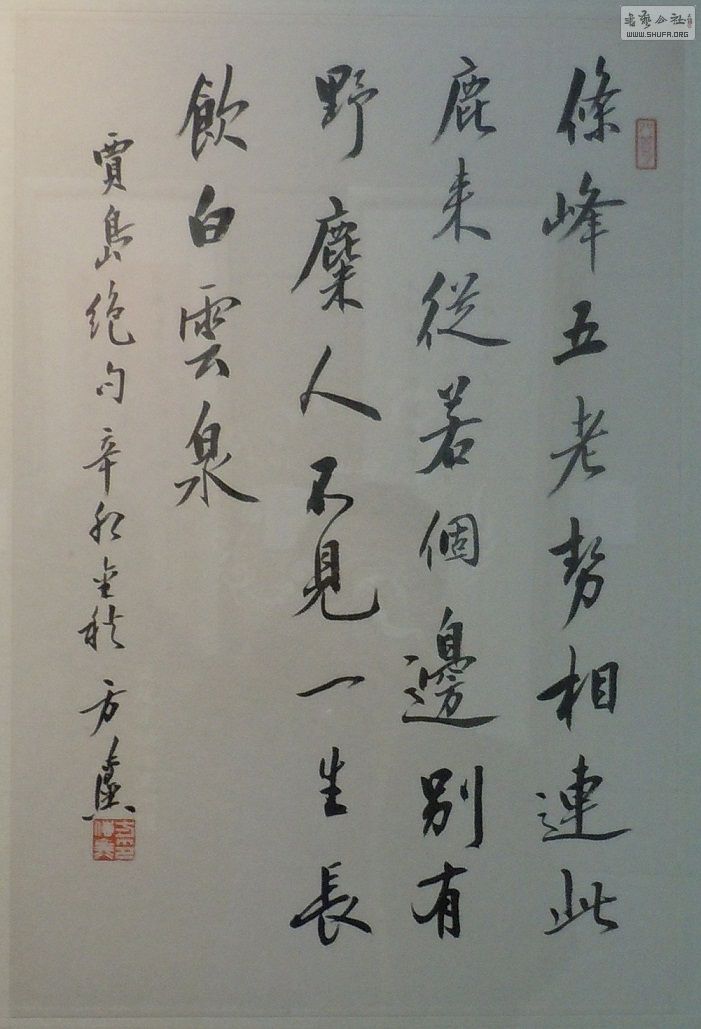 條峰五老勢相連此
鹿来從若個邊別有
野麋人不見一生長
飲白雲泉
賈島絶句辛卯金秋方
書艺公社
WWW.SHUFA.ORG